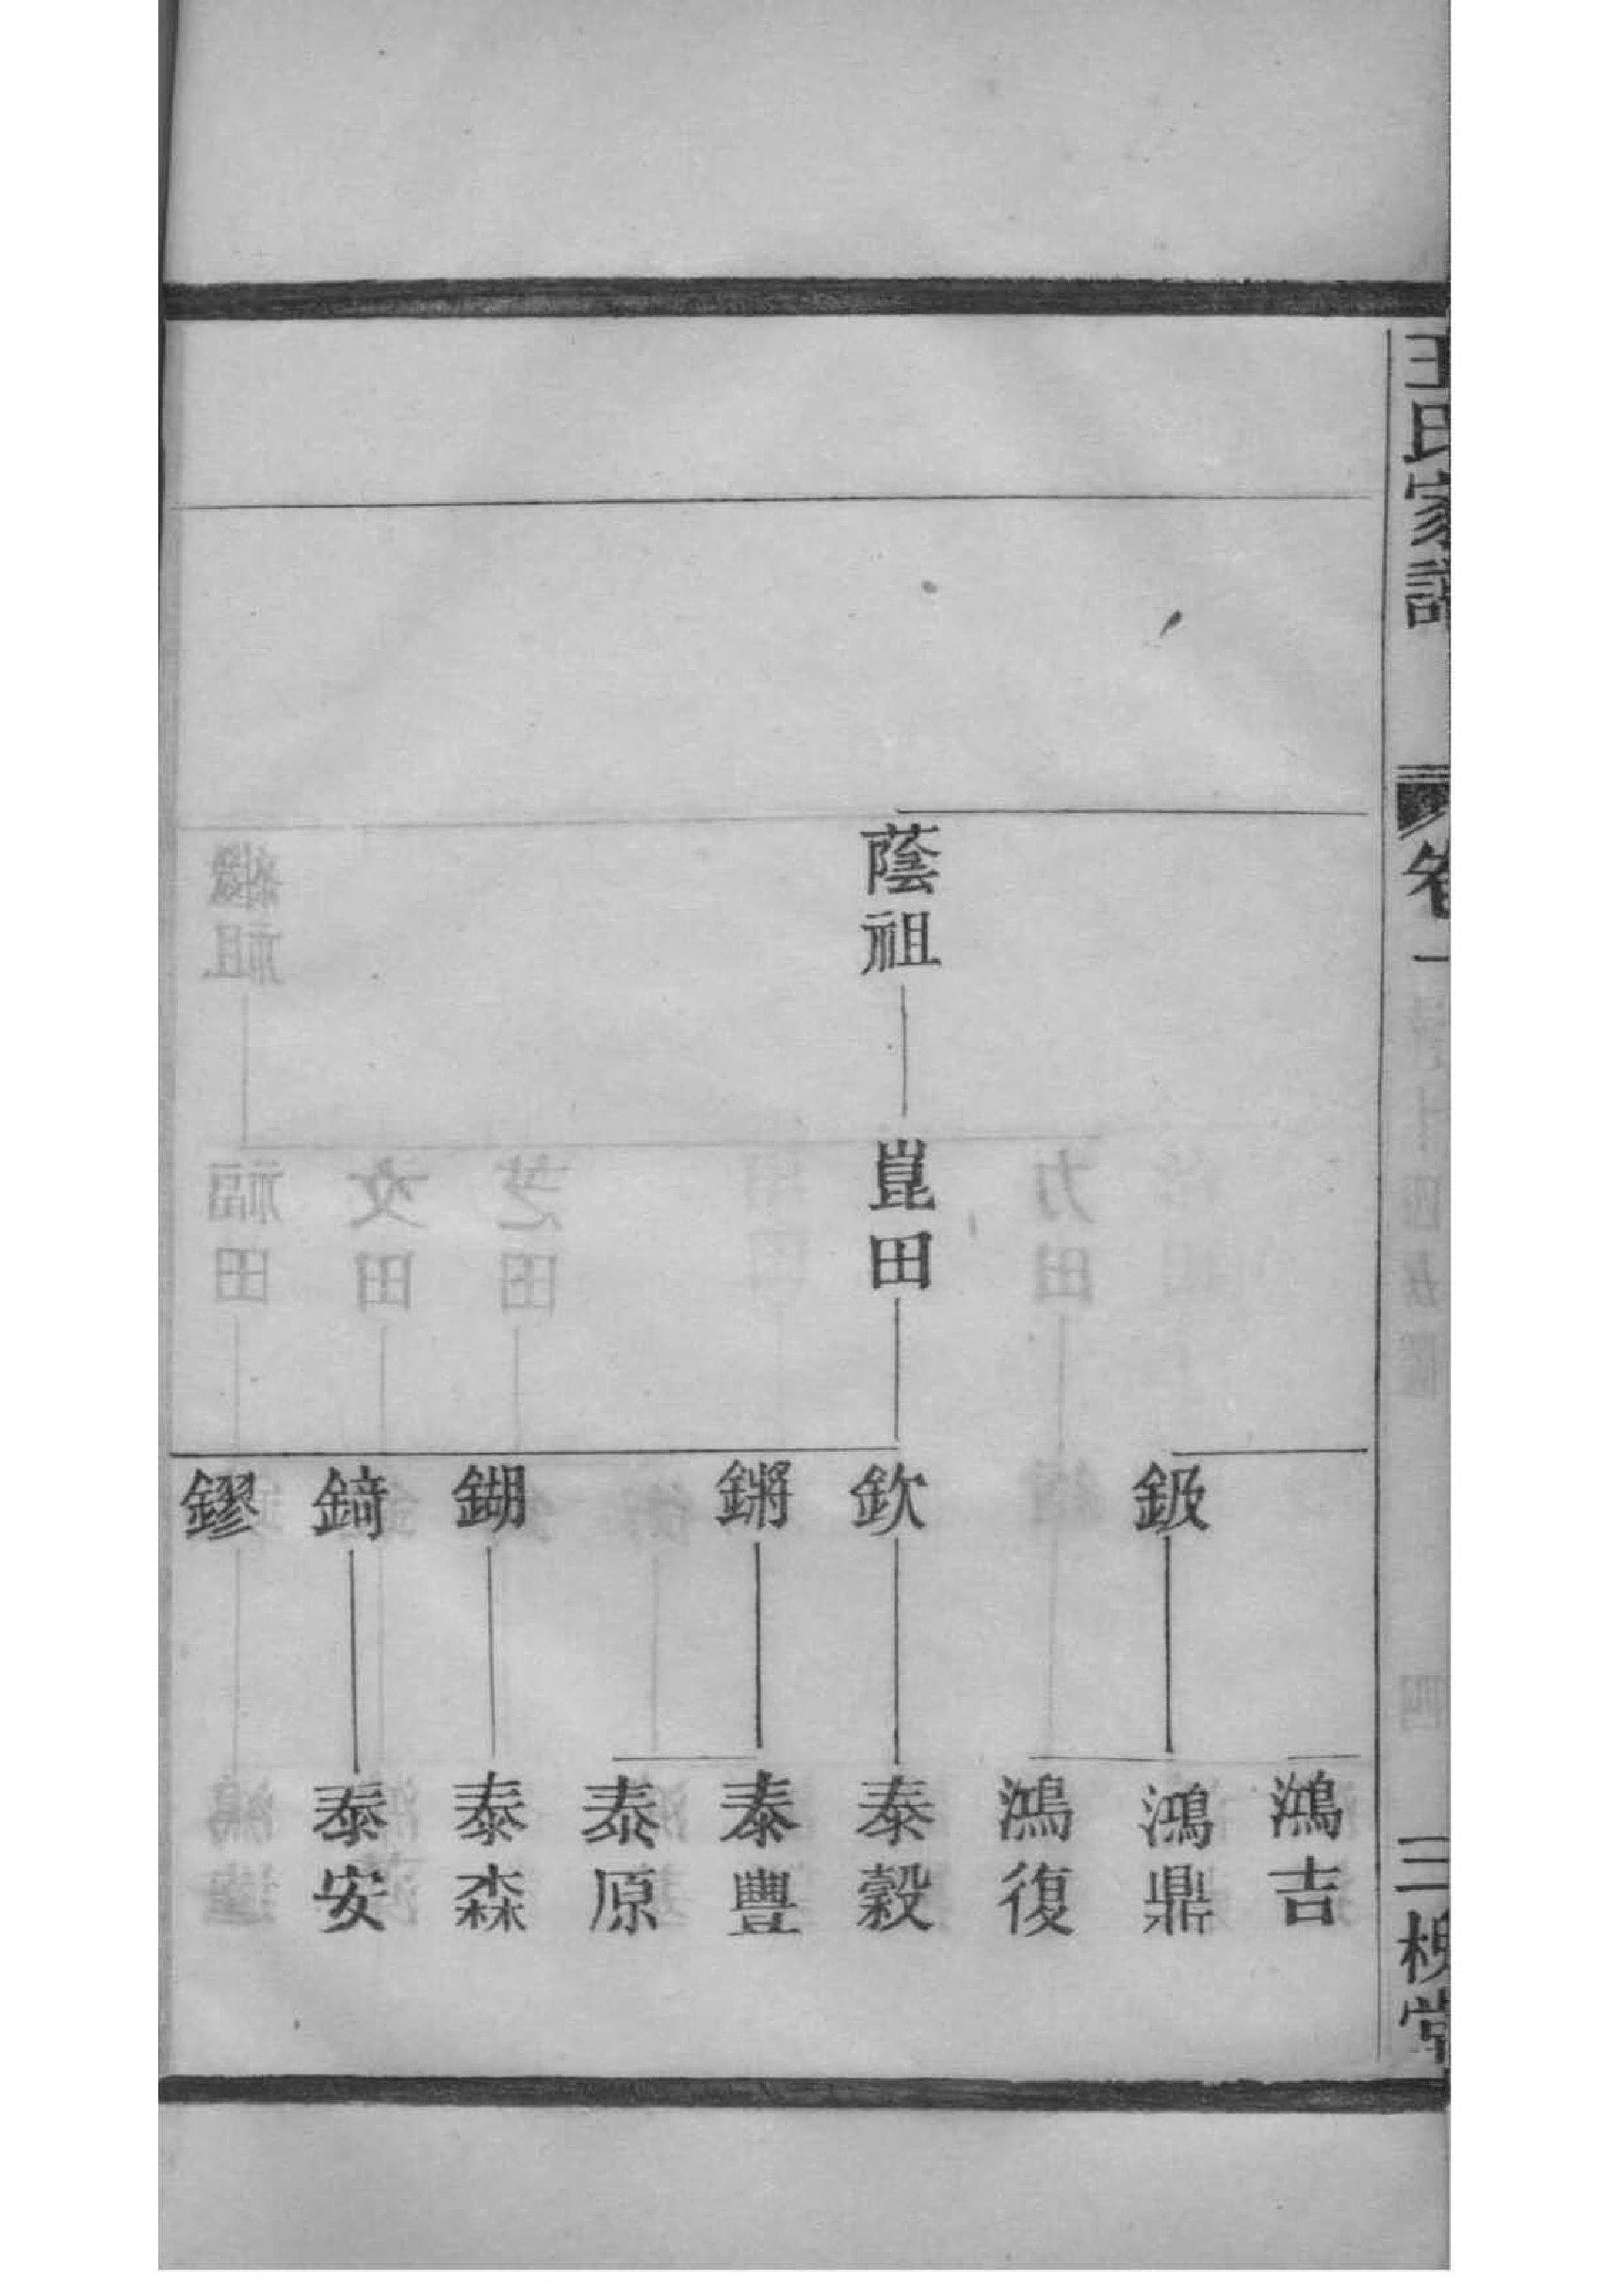 王氏家譜
卷一
三槐堂
蔭祖
崑田
鈒
欽
鏘
鍸
錡
鏐
鴻吉
鴻鼎
鴻復
泰穀
泰豐
泰原
泰森
泰安